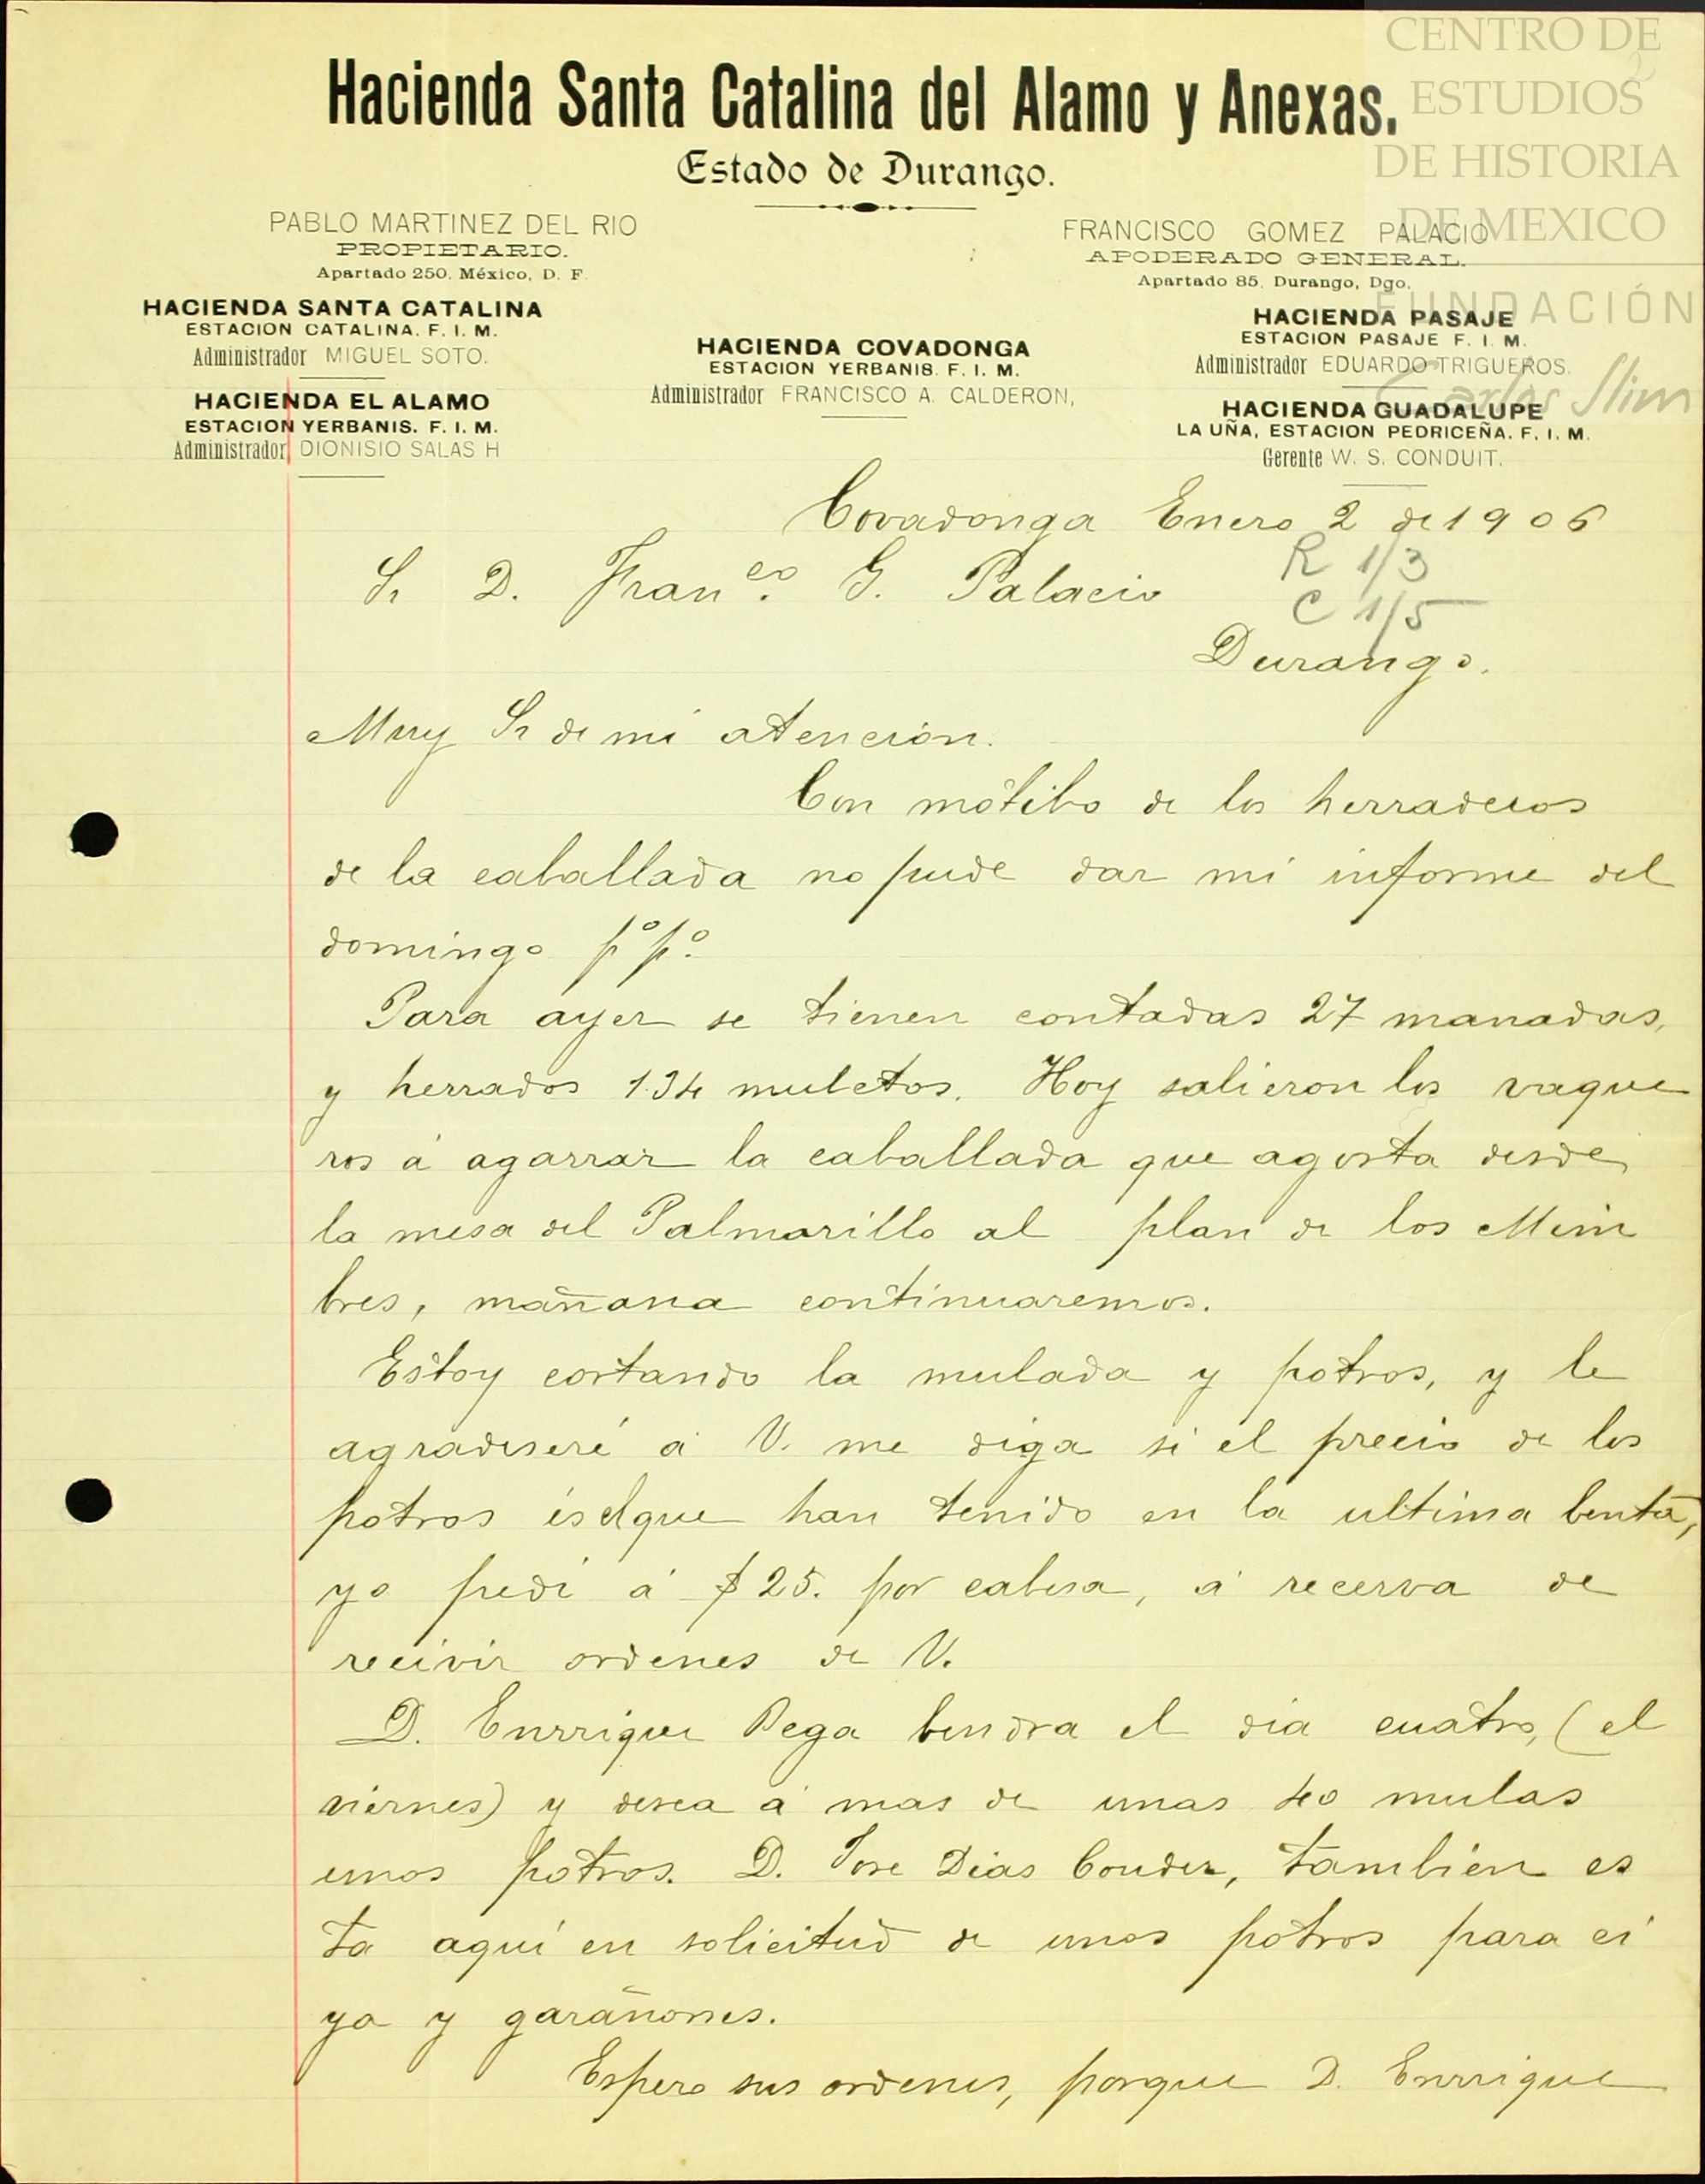 CENTRO DE
ESTUDIOS
DE HISTORIA
DE MEXICO
FUNDACIÓN
Carlos Slim
Hacienda Santa Catalina del Alamo y Anexas.
Estado de Durango.
PABLO MARTINEZ DEL RIO
PROPIETARIO.
Apartado 250. México, D. F.
FRANCISCO GOMEZ PALACIO
APODERADO GENERAL.
Apartado 85, Durango, Dgo.
HACIENDA SANTA CATALINA
ESTACION CATALINA. F. I. M.
Administrador MIGUEL SOTO.
HACIENDA EL ALAMO
ESTACION YERBANIS. F. I. M.
Administrador DIONISIO SALAS H
HACIENDA COVADONGA
ESTACION YERBANIS. F. I. M.
Administrador FRANCISCO A. CALDERON,
HACIENDA PASAJE
ESTACION PASAJE F. I. M.
Administrador EDUARDO TRIGUEROS.
HACIENDA GUADALUPE
LA UÑA, ESTACION PEDRICEÑA. F. I. M.
Gerente W. S. CONDUIT.
Covadonga Enero 2 de 1906
R 1/3
Sr D. Franco. G. Palacio
C 1/5
Durango.
Muy Sr de mi atencion.
Con motibo de los herraderos
de la caballada no pude dar mi informe del
domingo p°p°.
Para ayer se tienen contadas 27 manadas,
y herrados 134 muletos. Hoy salieron los vaque
ros á agarrar la caballada que agosta desde
la mesa del Palmarillo al plan de los Mim
bres, mañana continuaremos.
Estoy cortando la mulada y potros, y le
agradeseré á V. me diga si el precio de los
potros es el que han tenido en la ultima benta,
yo pedí á $25. por cabesa, á recerva de
recivir ordenes de V.
D. Enrrique Vega bendra el dia cuatro, (el
viernes) y desea á mas de unas 40 mulas
unos potros. D. Jose Dias Couder, tambien es
ta aquí en solicitud de unos potros para cí
ya y garañones.
Espero sus ordenes, porque D. Enrrique